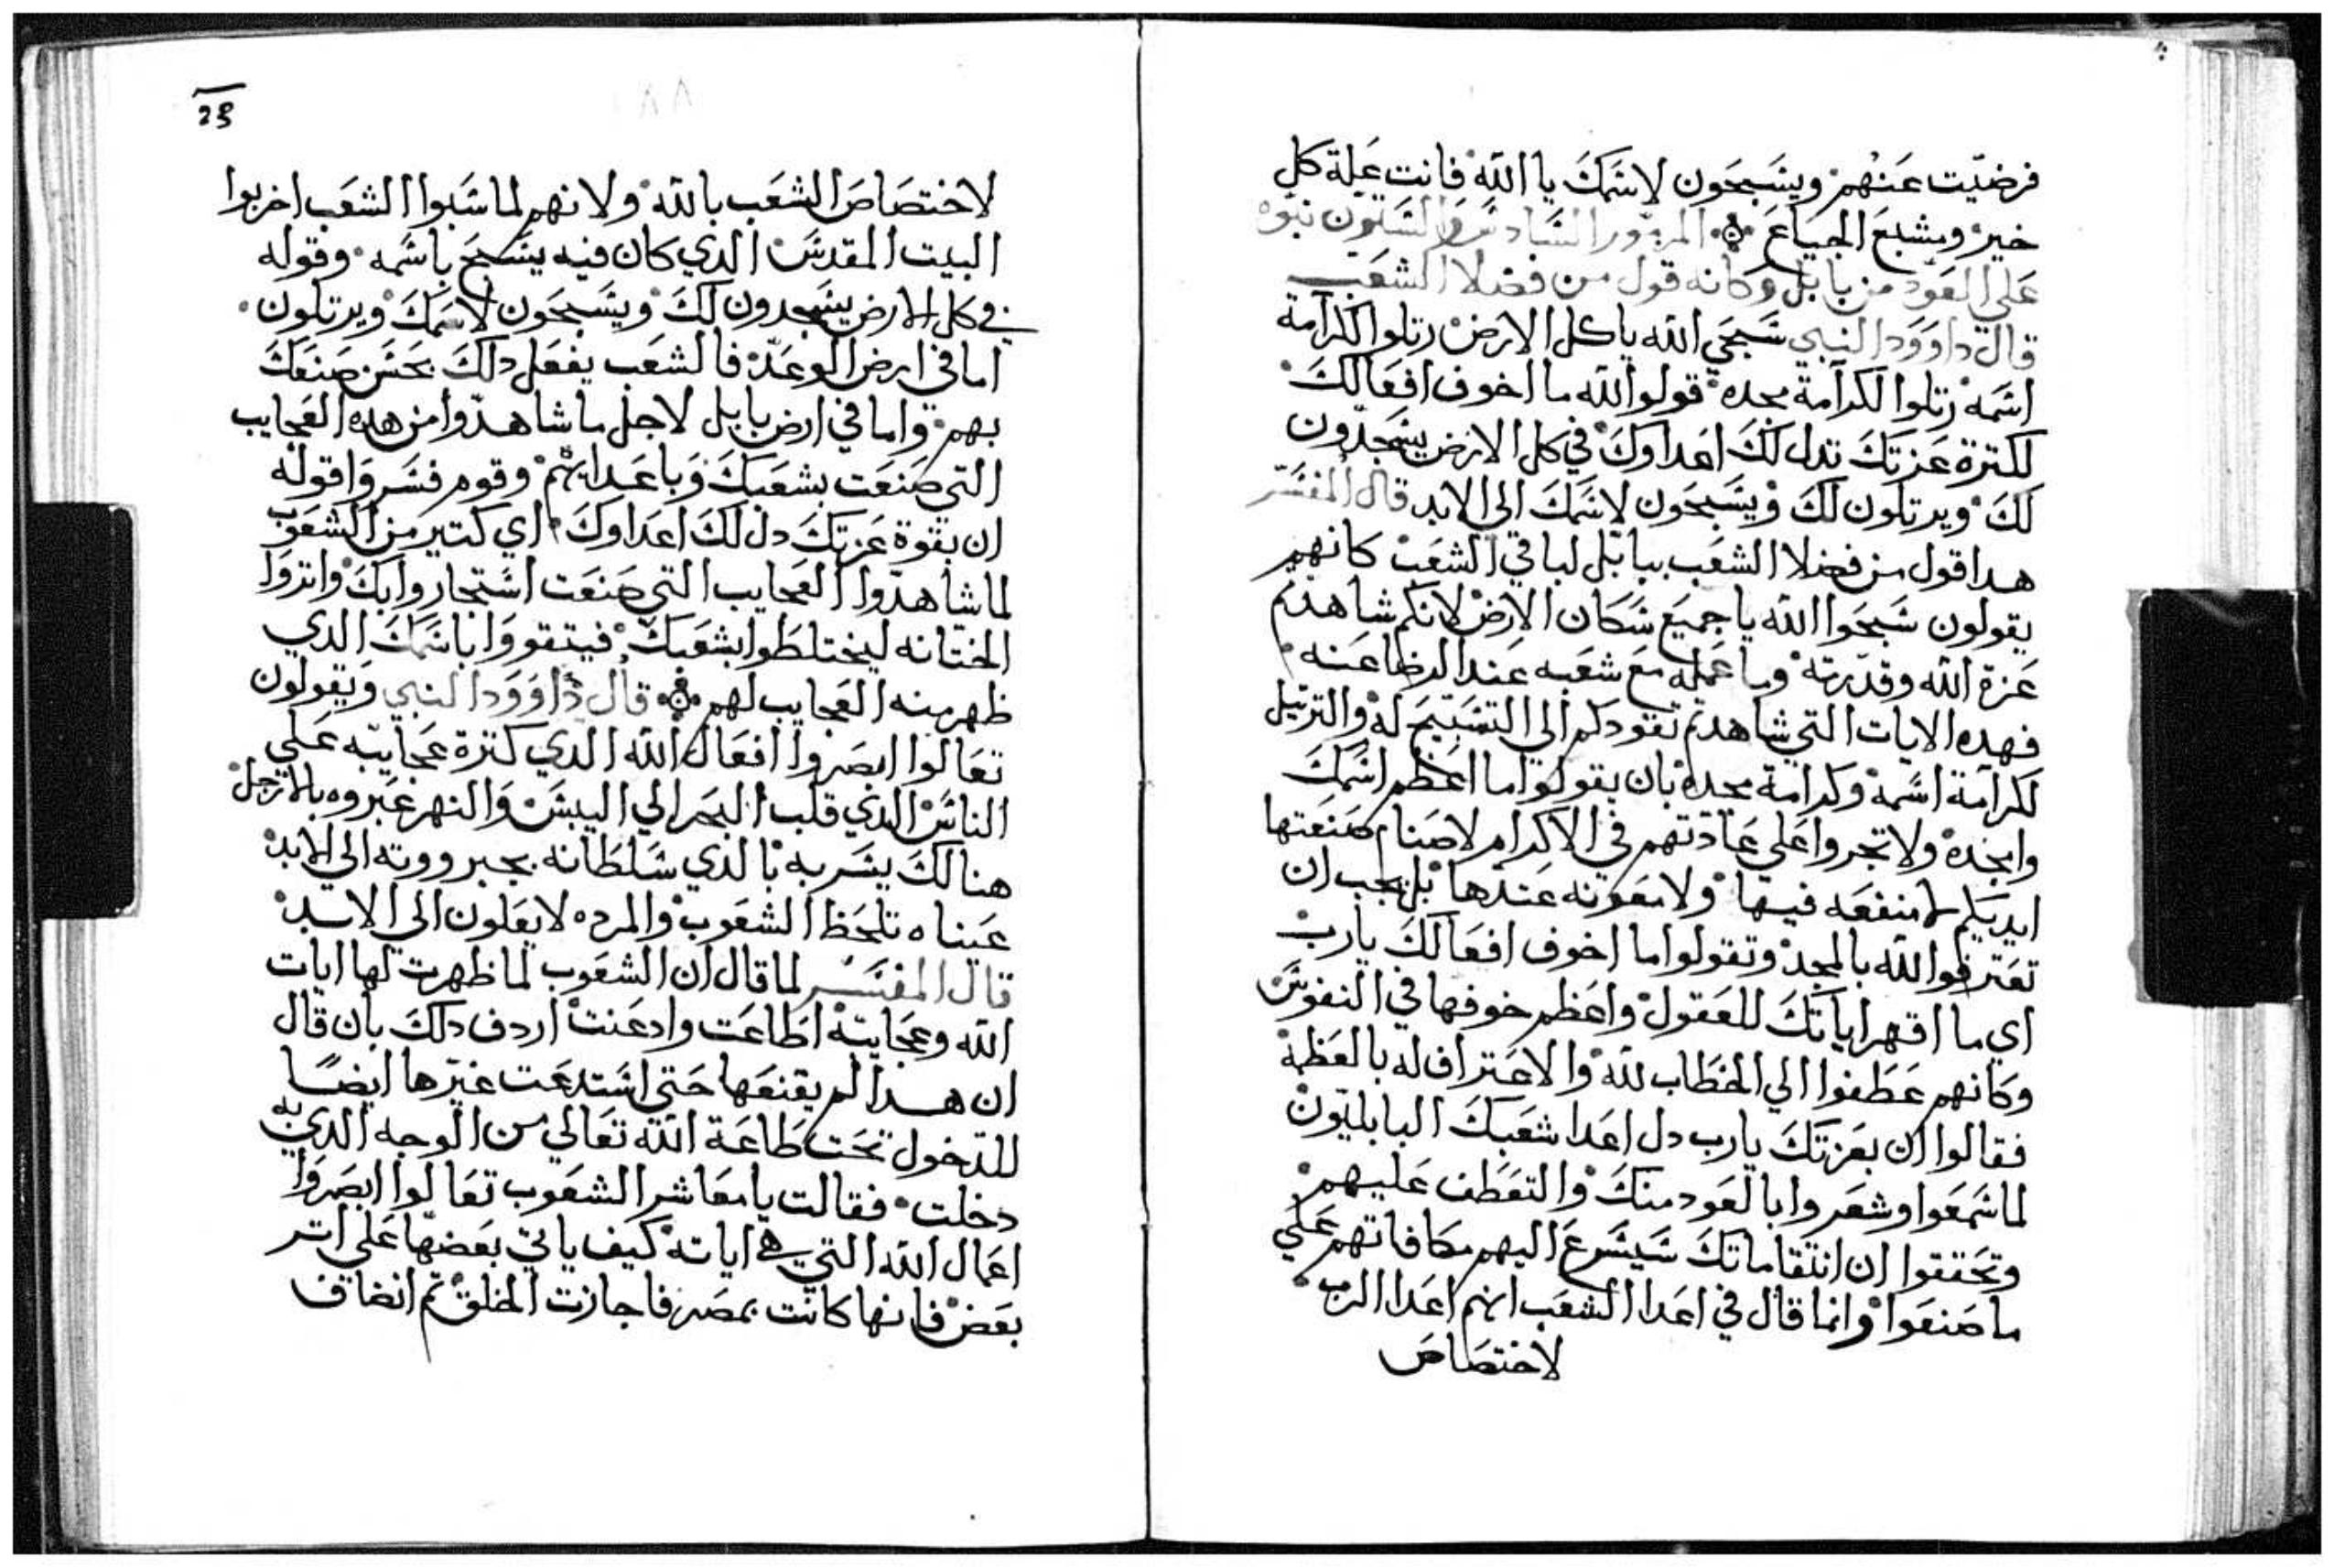 فرضيت عنهم ويسبحون لاسمك يا الله فانت علة كل
خير ومشبع الجياع المزمور السادس والستون نبوه
علي العود من بابل وكانه قول من فضلا الشعب
قال داوود النبي سبحي الله يا كل الارض رتلوا لكرامة
اسمه رتلوا لكرامة مجده قولوا لله ما اخوف افعالك
لكترة عزتك تدل لك اعداوك في كل الارض يسجدون
لك ويرتلون لك ويسبحون لاسمك الي الابد قال المفسر
هدا قول من فضلا الشعب ببابل لباقي الشعب كانهم
يقولون سبحوا الله يا جميع سكان الارض لانكم شاهدتم
عزة الله وقدرته وما عمله مع شعبه عند الرضا عنه
فهده الايات التي شاهدتم تقودكم الي التسبيح له والترتيل
لكرامة اسمه وكرامة مجده بان يقولوا ما اعظم اسمك
وامجده ولا تجروا علي عادتهم في الاكرام لاصنام صنعتها
ايديكم لا منفعه فيها ولا معونه عندها بل يجب ان
تعترفوا لله بالمجد وتقولوا ما اخوف افعالك يارب
اي ما اقهر اياتك للعقول واعظم خوفها في النفوس
وكانهم عطفوا الي الخطاب لله والاعتراف له بالعظمة
فقالوا ان بعزتك يارب دل اعدا شعبك البابليون
لما سمعوا وشعروا بالعود منك والتعطف عليهم
وتحققوا ان انتقاماتك سيسرع اليهم مكافاتهم علي
ما صنعوا وانما قال في اعدا الشعب انهم اعدا الرب
لاختصاص
23
٨٨
لاختصاص الشعب بالله ولانهم لما سبوا الشعب اخربوا
البيت المقدس الدي كان فيه يسبح باسمه وقوله
في كل الارض يسجدون لك ويسبحون لاسمك ويرتلون
اما في ارض الوعد فالشعب يفعل دلك بحسن صنعك
بهم واما في ارض بابل لاجل ما شاهدوا من هده العجايب
التي صنعت بشعبك وباعدايهم وقوم فسروا قوله
ان بقوة عزتك دل لك اعداوك اي كتير من الشعوب
لما شاهدوا العجايب التي صنعت استجاروا بك واتروا
الختانه ليختلطوا بشعبك فيتقووا باسمك الدي
ظهر منه العجايب لهم قال داوود النبي ويقولون
تعالوا ابصروا افعال الله الدي كترة عجايبه علي
الناس الدي قلب البحر الي اليبس والنهر عبروه بالارجل
هنالك يسر به بالدي سلطانه بجبرووته الي الابد
عيناه تلحظ الشعوب والمرده لا يعلون الي الابد
قال المفسر لما قال ان الشعوب لما ظهرت لها ايات
الله وعجايبه اطاعت وادعنت اردف دلك بان قال
ان هدا لم يقنعها حتي استدعت غيرها ايضًا
للدخول تحت طاعة الله تعالي من الوجه الدي به
دخلت فقالت يا معاشر الشعوب تعالوا ابصروا
اعمال الله التي هي اياته كيف ياتي بعضها علي اتر
بعض فانها كانت بمصر فاجازت الخلق تم انضاف